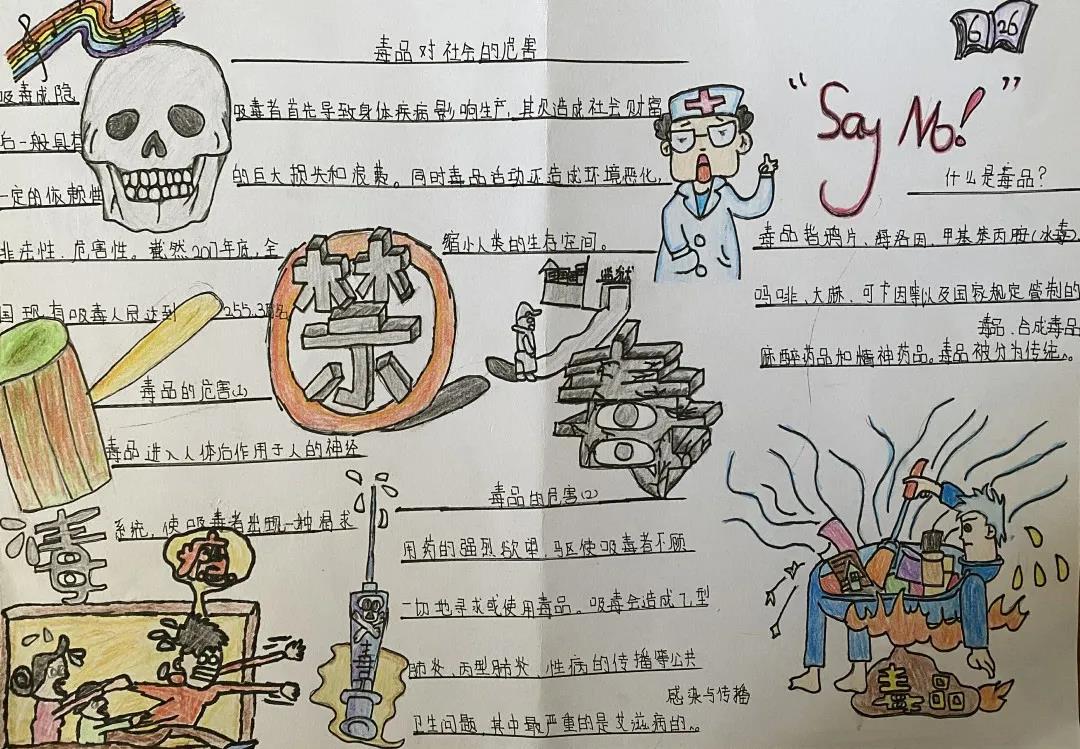 毒品对社会的危害
吸毒者首先导致身体疾病影响生产,其次造成社会财富
的巨大损失和浪费。同时毒品活动还造成环境恶化,
缩小人类的生存空间。
吸毒成隐
后一般具有
一定的依赖性
非法性、危害性。截然2017年底,全
国现有吸毒人员达到255.3万名
毒品的危害(1)
毒品进入人体后作用于人的神经
系统,使吸毒者出现一种渴求
毒品的危害(2)
用药的强烈欲望,驱使吸毒者不顾
一切地寻求或使用毒品。吸毒会造成乙型
肺炎、丙型肺炎、性病的传播等公共
卫生问题,其中最严重的是艾滋病的
感染与传播
6 26
“Say No!”
什么是毒品?
毒品指鸦片、海洛因、甲基苯丙胺(冰毒)
吗啡、大麻、可卡因等以及国家规定管制的
麻醉药品和精神药品。毒品被分为传统
毒品、合成毒品
禁
监狱
毒
毒
毒
毒品